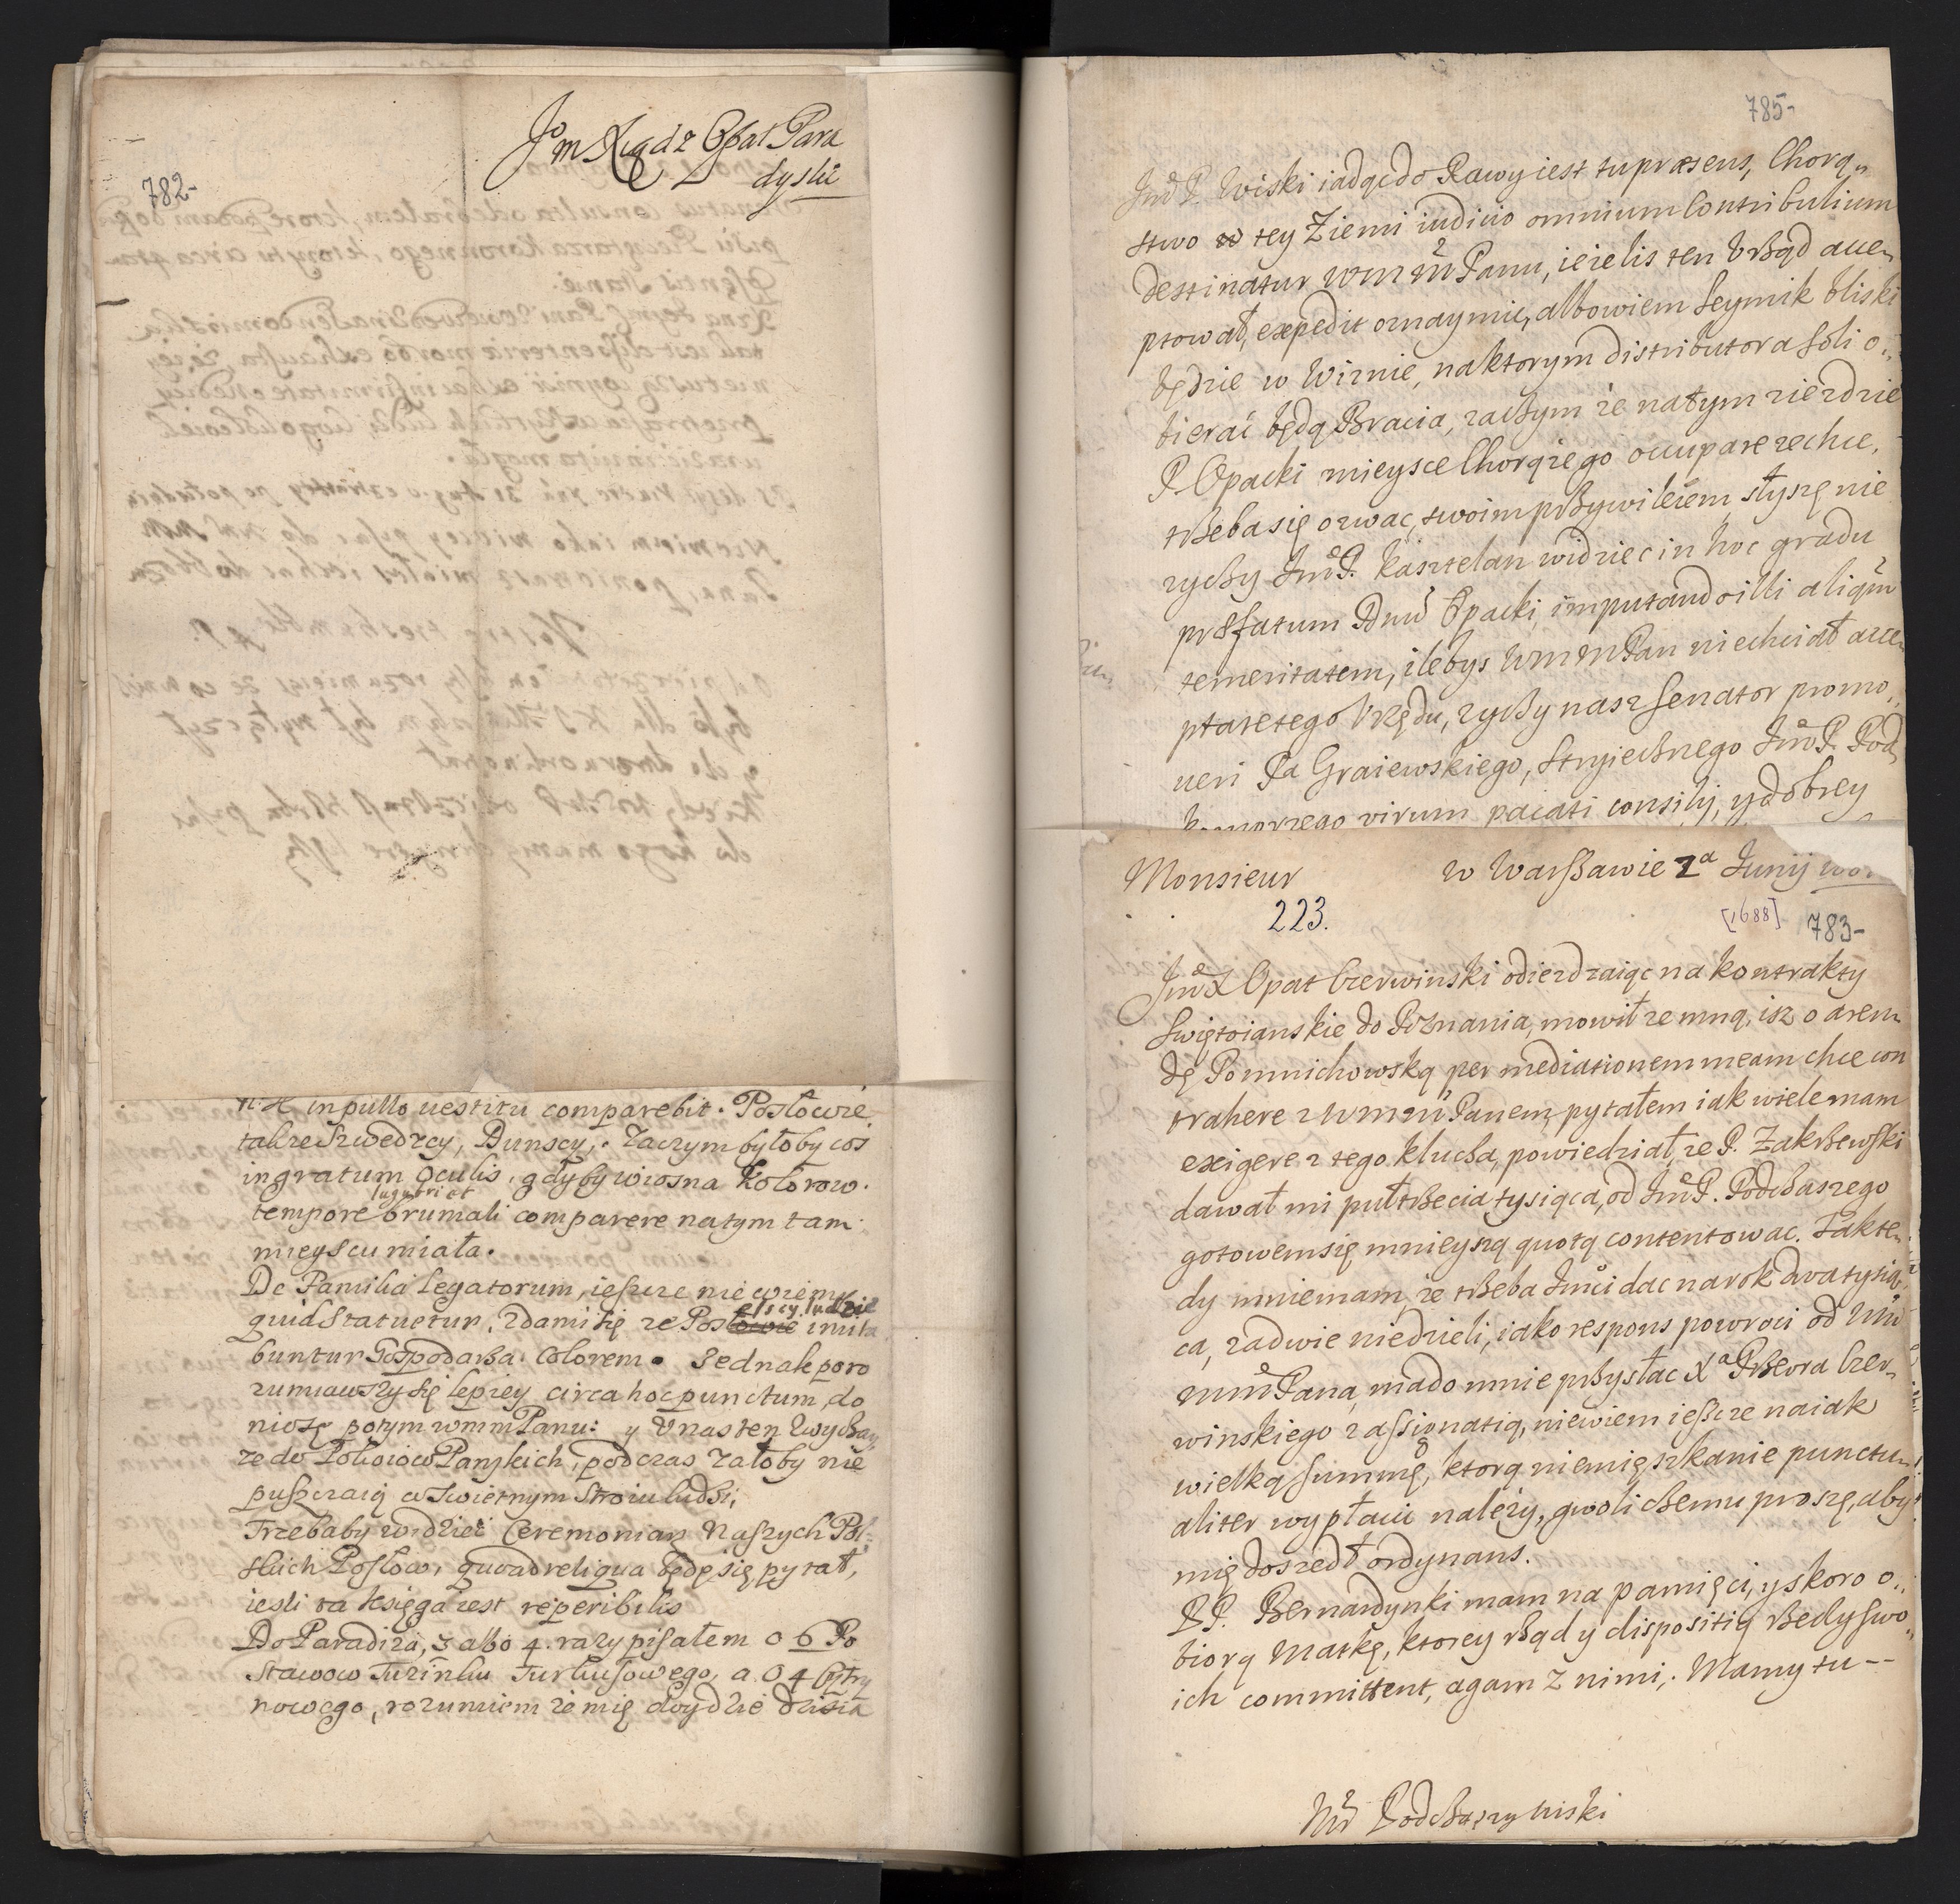 Jm Xiądz Opat Para
dyski
782-
in pullo uestitu comparebit. Posłowie
takze Szwedzcy, Dunscy, zaczym byłoby cos
ingratum oculis, gdyby wiosna kolorow
lugubri et
tempore brumali comparere na tym tam
mieyscu miała.
De Familia legatorum, ieszcze nie wiem
elscy ludzie
quid statuetur, zda mi się ze Posłowie imita
buntur Gospodarza colorem. Jednak poro
zumiawszy się lepiey circa hoc punctum, do
niosę potym wmm Panu: y v nas ten zwyczay,
ze do Pokoiow Panskich, podczas załoby nie
puszczaią w swietnym stroiu ludzi,
Trzebaby widziec Ceremoniarz Naszych Pol:
skich Posłow, quoad reliqua będę się pytał,
iesli ta księga iest reperibilis
Do Paradiza, 3 albo 4. razy pisałem o 6 Po
stawow Tuzinku Turkusowego, a o 4 Cytry
nowego, rozumiem ze mię doydzie dzisia
785-
Jmo P. Wiski iadąc do Rawy iest tu præsens, Chorą„
stwo w tey Ziemi iudicio omnium Contribulium
destinatur WMM Panu, iezelis ten Vrząd acce„
ptował, expedit oznaymic, albowiem Seymik bliski
będzie w Wiznie, na ktorym distributora soli o„
bierać będą Bracia, zaczym że na tym ziezdzie
P. Opacki mieysce Chorązego occupare zechce,
trzeba się ozwac, swoim przywileiem, słyszę nie
zyczy Jmo P. Kasztelan widziec in hoc gradu
præfatum Dnum Opacki, imputando illi aliqm
temeritatem, ilebys WMM Pan niechciał acce„
ptare tego Vrzędu, zyczy nasz Senator promo„
ueri Pa Graiewskiego, Stryiecznego Jmo P. Pod
komorzego virum pacati consilij, y dobrey
Monsieur
w Warszawie 2a Junij
223.
[1688]
783-
Jmo X Opat Czerwinski odiezdzaiąc na kontrakty
Swiętoianskie do Poznania, mowił ze mną, isz o aren„
dę Pomnichowską per mediationem meam chce con
trahere z WMM Panem, pytałem iak wiele mam
exigere z tego klucza, powiedział, ze P. Zakrzewski
dawał mi pułtrzecia tysiąca, od Jmo P. Podczaszego
gotowem się mnieyszą quotą contentowac. Takte„
dy mniemam, ze trzeba Jmci dac na rok dwa tysią„
ca, za dwie niedzieli, iako respons powroci od Wm
mm Pana, ma do mnie przysłac Xa Przeora Czer„
winskiego z assignatią, niewiem ieszcze na iak
wielką summę, ktorą niemięszkanie punctu„
aliter wypłacic nalezy, gwoli czemu proszę, aby
mię doszedł ordynans.
PP. Bernardynki mam na pamięci, y skoro o„
biorą Matkę, ktorey rząd y dispositią Rzeczy swo„
ich committent, agam z nimi; Mamy tu --
Mr Podchaszynski